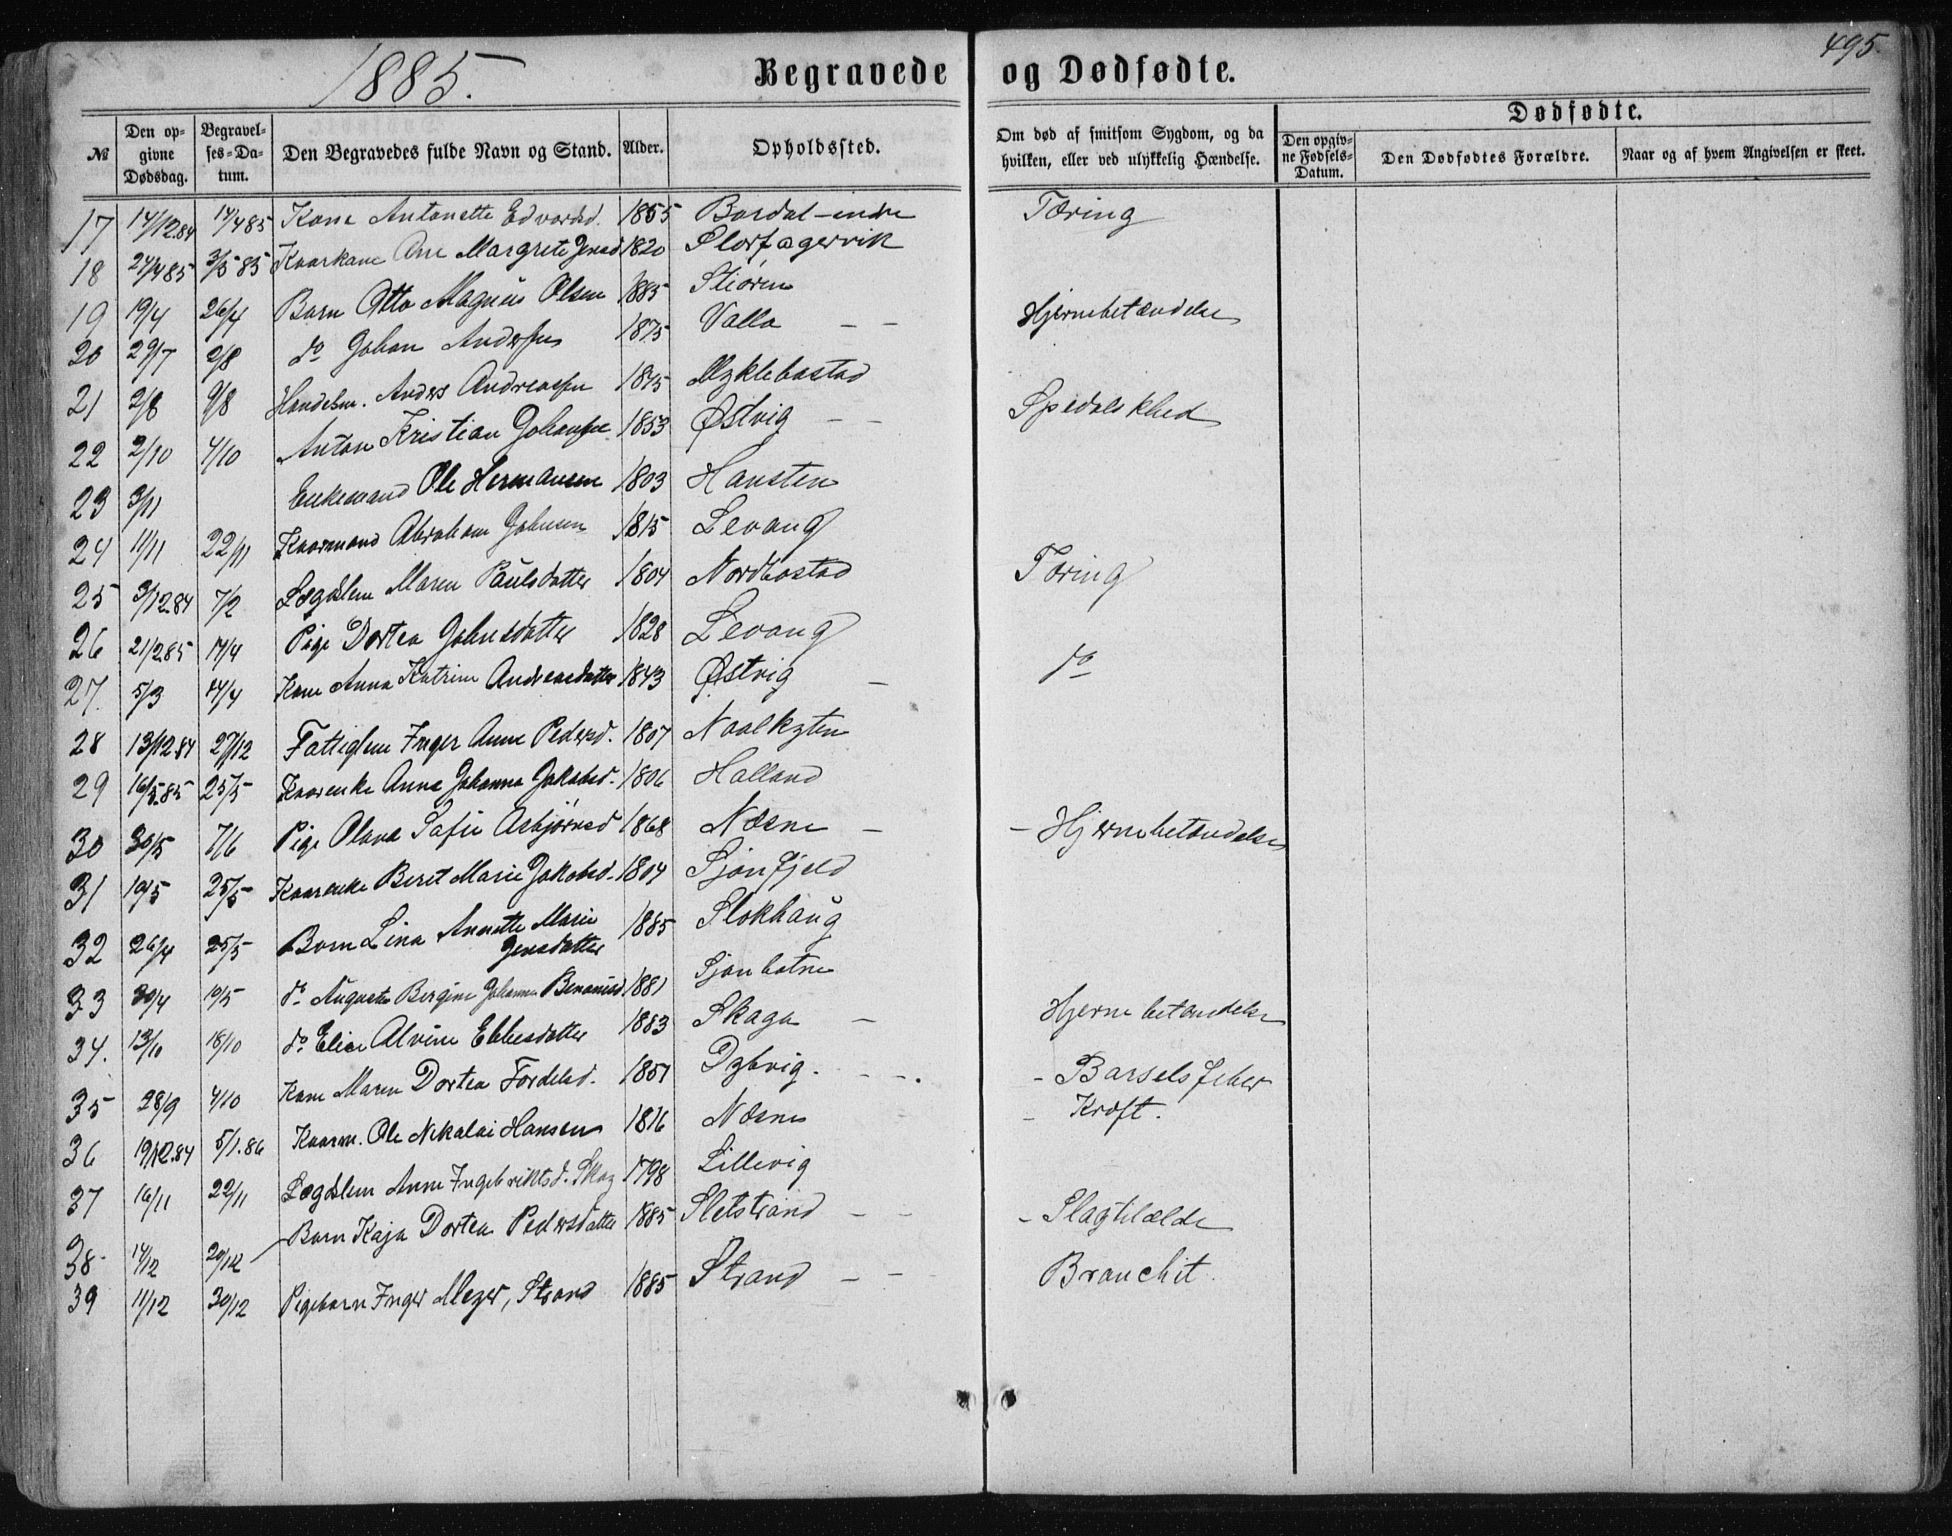 1885.
Begravede og Dødfødte.
495.
№
Den opgivne Dødsdag.
Begravelses-Datum.
Den Begravedes fulde Navn og Stand.
Alder.
Opholdssted.
Om død af smitsom Sygdom, og da hvilken, eller ved ulykkelig Hændelse.
Dødfødte.
Den opgivne Fødsels-Datum.
Den Dødfødtes Forældre.
Naar og af hvem Angivelsen er skeet.
17 14/12.84 14/4 85 Kone Antonette Edvardsd. 1855 Bardal-indre Tæring
18 24/4 85 3/5 85 Kaarkane Ane Margrete Jensd 1820 Storfagervik
19 19/4 26/4 Barn Otto Magnus Olsen 1885 Stiøren
20 29/7 2/8 do Johan Anderssen 1875 Valla — — Hjernebetændelse
21 2/8 9/8 Handelsm. Anders Andreassen 1845 Myklebostad
22 2/10 4/10 Anton Kristian Johansen 1853 Østvig — — Spedalskhed
23 3/11 Enkemand Ole Hermansen 1803 Hansten
24 11/11 22/11 Kaarmand Abraham Johnsen 1815 Levang
25 3/12.84 7/2 Lægdslem Maren Paulsdatter 1804 Nordbostad Tæring
26 21/2.85 14/4 Pige Dortea Johnsdatter 1828 Levang
27. 5/3 14/4 Kone Anna Katrine Andreasdatter 1843 Østvig — do
28 13/12.84 27/12 Fattiglem Inger Anne Pedersd. 1807 Naalkyten
29 16/5.85 25/5 Kaarenke Anne Johanna Jakobsd. 1806 Halland
30 30/5 7/6 Pige Olava Sofie Asbjørnsd 1868 Næsne — — Hjernebetændelse
31 19/5 25/5 Kaarenke Beret Marie Jakobsd. 1804 Sjonfjeld
32 26/4 25/5 Barn Lina Annette Marie Jensdatter 1885 Slokhaug
33 30/4 19/5 do Augusta Bergine Johanna Benoniesd 1881 Sjonbotne
34. 13/10 18/10 do Elice Alvine Ebbesdatter 1883 Skaga — Hjernebetændelse
35 28/9 4/10 Kone Maren Dortea Fordelsd. 1851 Dybvig. - -. - Barselsfeber
36 19/12.84 5/1.86 Kaarm. Ole Nikolai Hansen 1816 Næsne - Kræft.
37 16/11 22/11 Lægdslem Anne Ingebriktsd. Skog 1798 Lillevig
38. 14/12 20/12 Barn Kaja Dortea Pedersdatter 1885 Sletstrand — — - Slagtilælde
39 11/12 30/12 Pigebarn Inger Mezer, Strand 1885 Strand — — Bronchit.